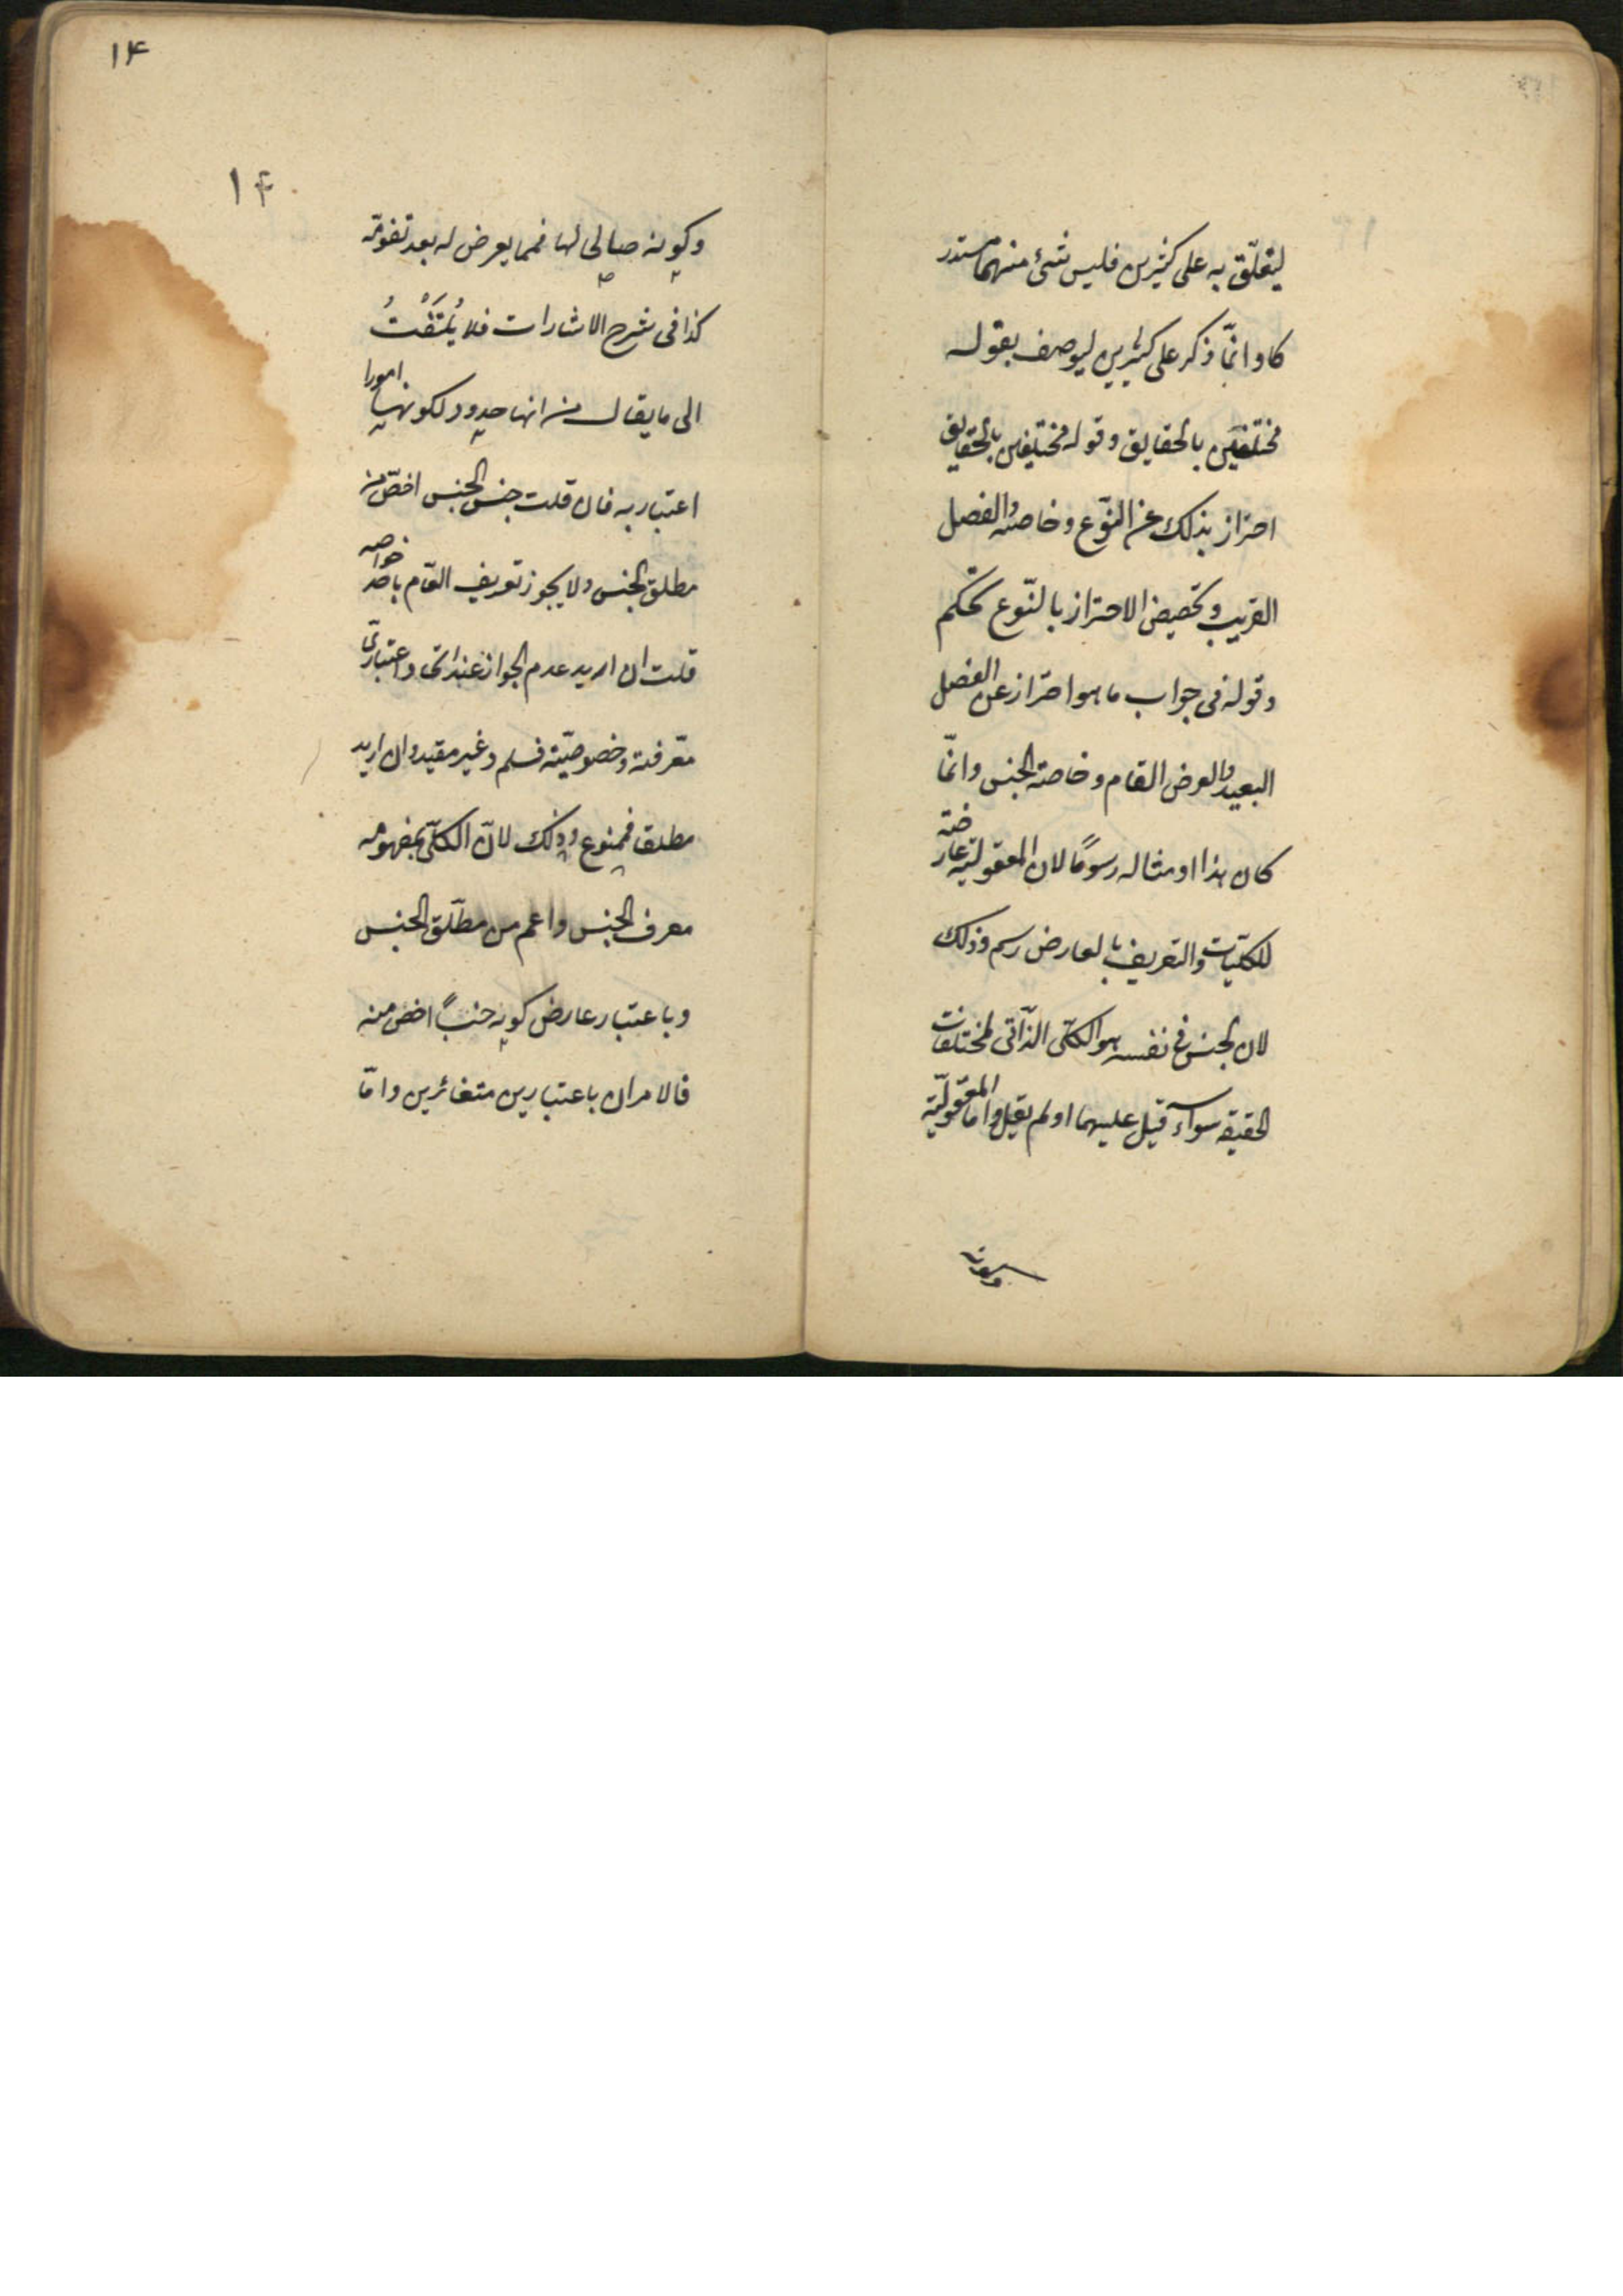 ليتعلّق به على كثيرين فليس شئ منهما مستدر
كا وانّما ذكر على كثيرين ليوصف بقوله
مختلفين بالحقايق وقوله مختلفين بالحقايق
احتراز بذلك عن النّوع وخاصته والفصل
القريب وتخصيص الاحتراز بالنّوع تحكم
وقوله فى جواب ما هو احتراز عن الفصل
البعيد والعرض العام وخاصة الجنس وانّما
كان هذا او مثاله رسومًا لان المعقولية عارضة
للكليّات والتعريف بالعارض رسم وذلك
لان الجنس فى نفسه هو الكلّى الذّاتى لمختلفات
الحقيقه سواء قيل عليهما او لم يقيل واما المعقوليّة
وكونه
١٤
١٤
وكونه صالحا لها فمما يعرض له بعد تقومّه
كذا فى شرح الاشارات فلا يُلتَفْتُ
الى ما يقال من انها حدود لكونها امورا
اعتباريه فان قلت جنس الجنس اخصّ من
مطلق الجنس ولا يجوز تعريف العّام باحد خواصه
قلت ان اريد عدم الجواز عند اتحاد اعتبارىّ
معّرفته وخصوصيّته فسلم وغير مقيد وان اريد
مطلقا فممنوع وذلك لانّ الكلّى بمفهومه
معرف الجنس واعم من مطلّق الجنس
وباعتبار عارض كونه جنسًا اخص منه
فالامران باعتبارين متغائرين وامّا